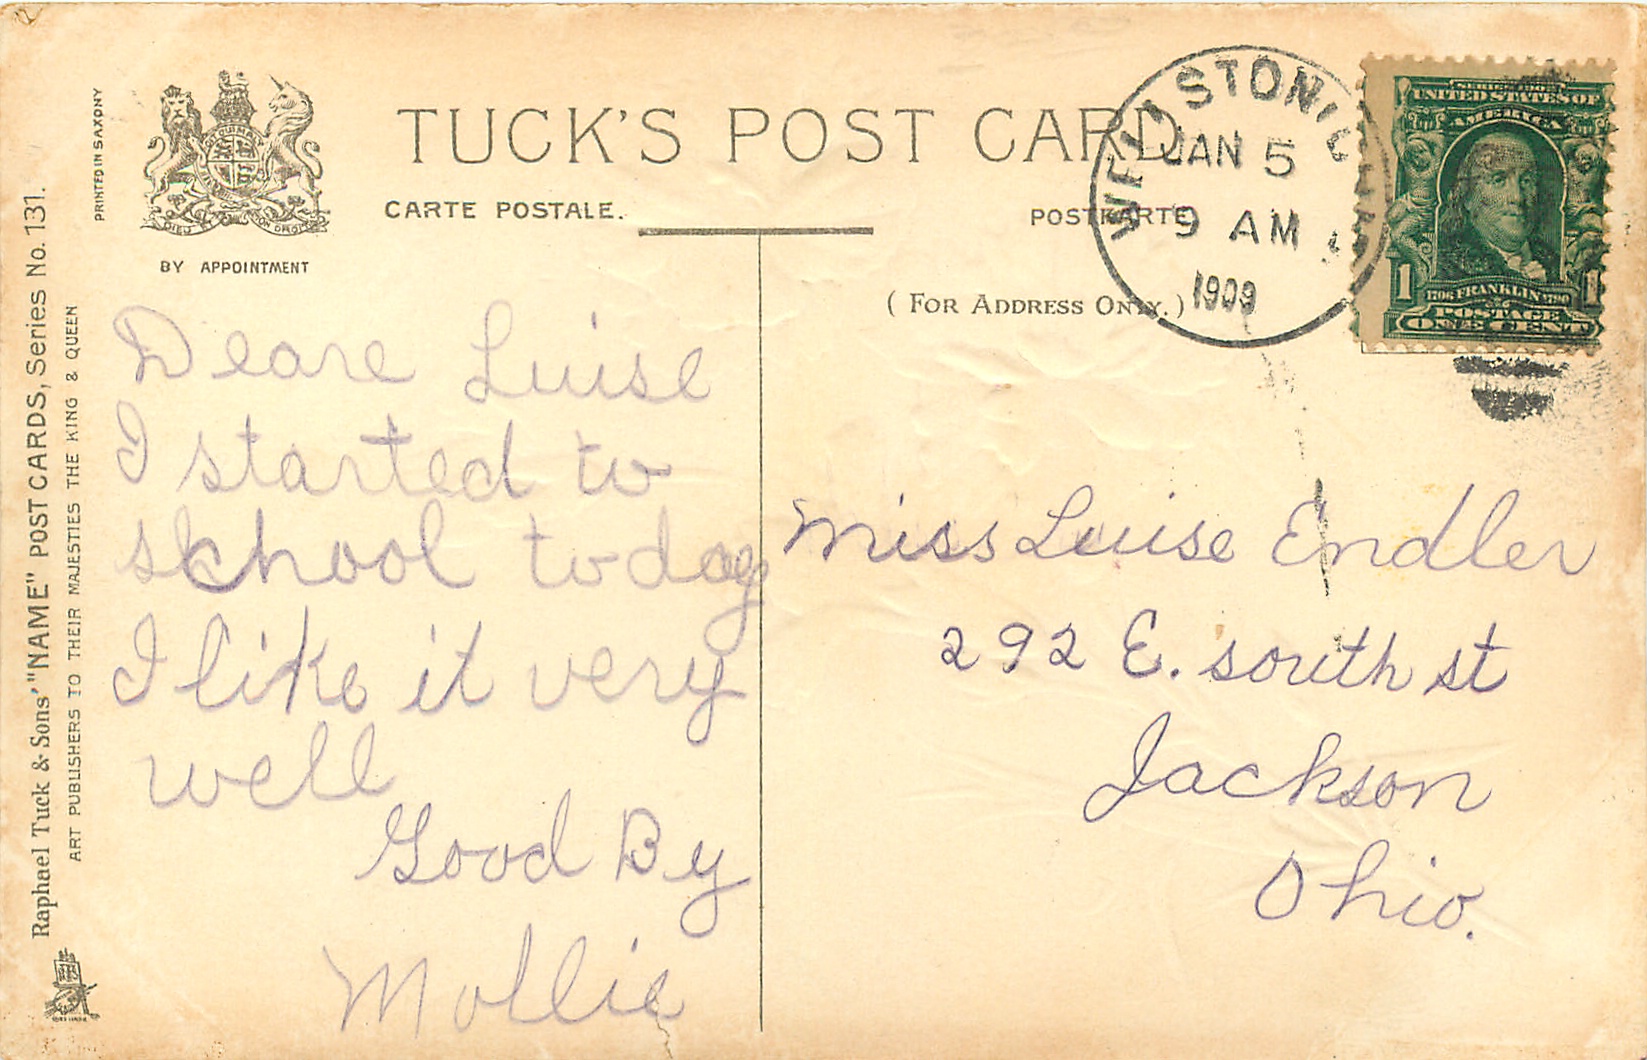 PRINTED IN SAXONY
Raphael Tuck & Sons' "NAME" POST CARDS, Series No. 131.
ART PUBLISHERS TO THEIR MAJESTIES THE KING & QUEEN
DIEU ET MON DROIT
BY APPOINTMENT
TUCK'S POST CARD
CARTE POSTALE.
POSTKARTE
( FOR ADDRESS ONLY. )
WELLSTON
JAN 5
9 AM
1909
UNITED STATES OF
AMERICA
1 1
1706 FRANKLIN 1790
POSTAGE
ONE CENT
Deare Luise
I started to
skhool today
I like it very
well
Good By
Mollie
Miss Luise Endler
292 E. south st
Jackson
Ohio.